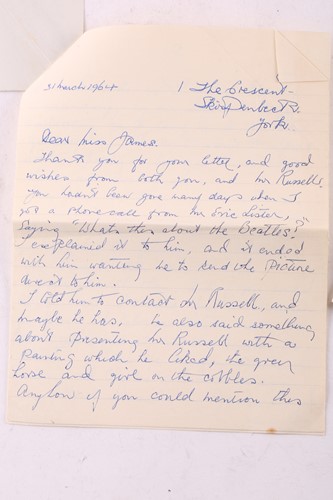 31 March 1964
1 The Crescent
York.
Dear Miss James.
Thank you for your letter, and good
wishes from both you, and Mr Russell,
you hadn't been gone many days when I
got a phone call from Mr Eric Lister,
saying "What's this about the Beatles"
I explained it to him, and it ended
with him wanting me to send the picture
down to him.
I told him to contact Mr Russell, and
maybe he has, he also said something
about presenting Mr Russell with a
painting which he liked, the grey
horse and girl on the cobbles.
Anyhow if you could mention this